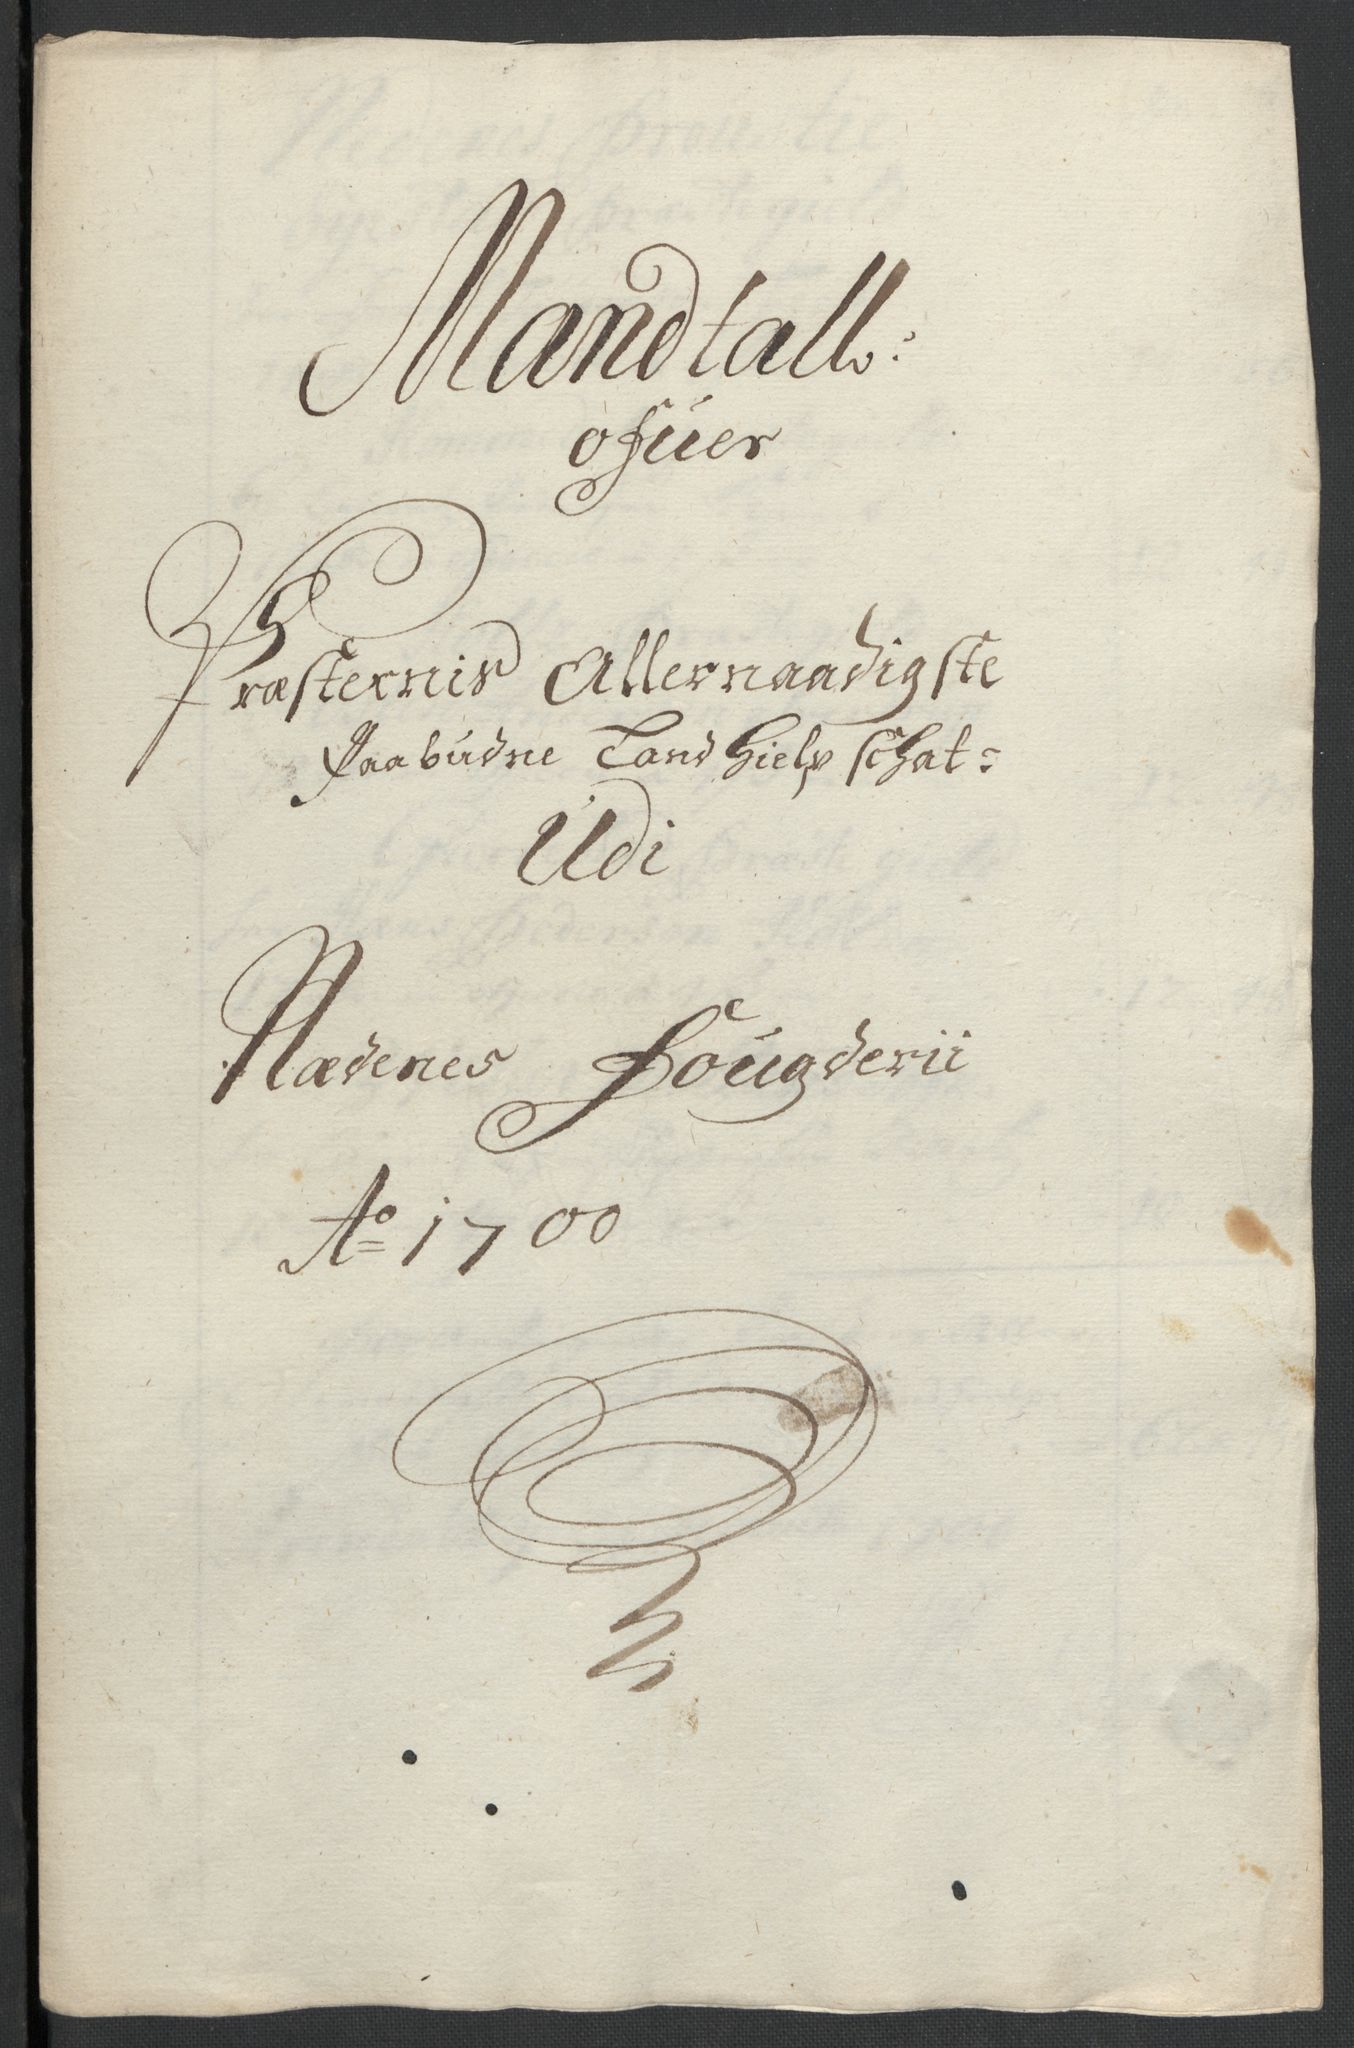 Mandtall:
ofuer
Præsternis Allernaadigste
Paabudne Landhielp schat:
Udi
Nædenes Fougderii
Ao 1700